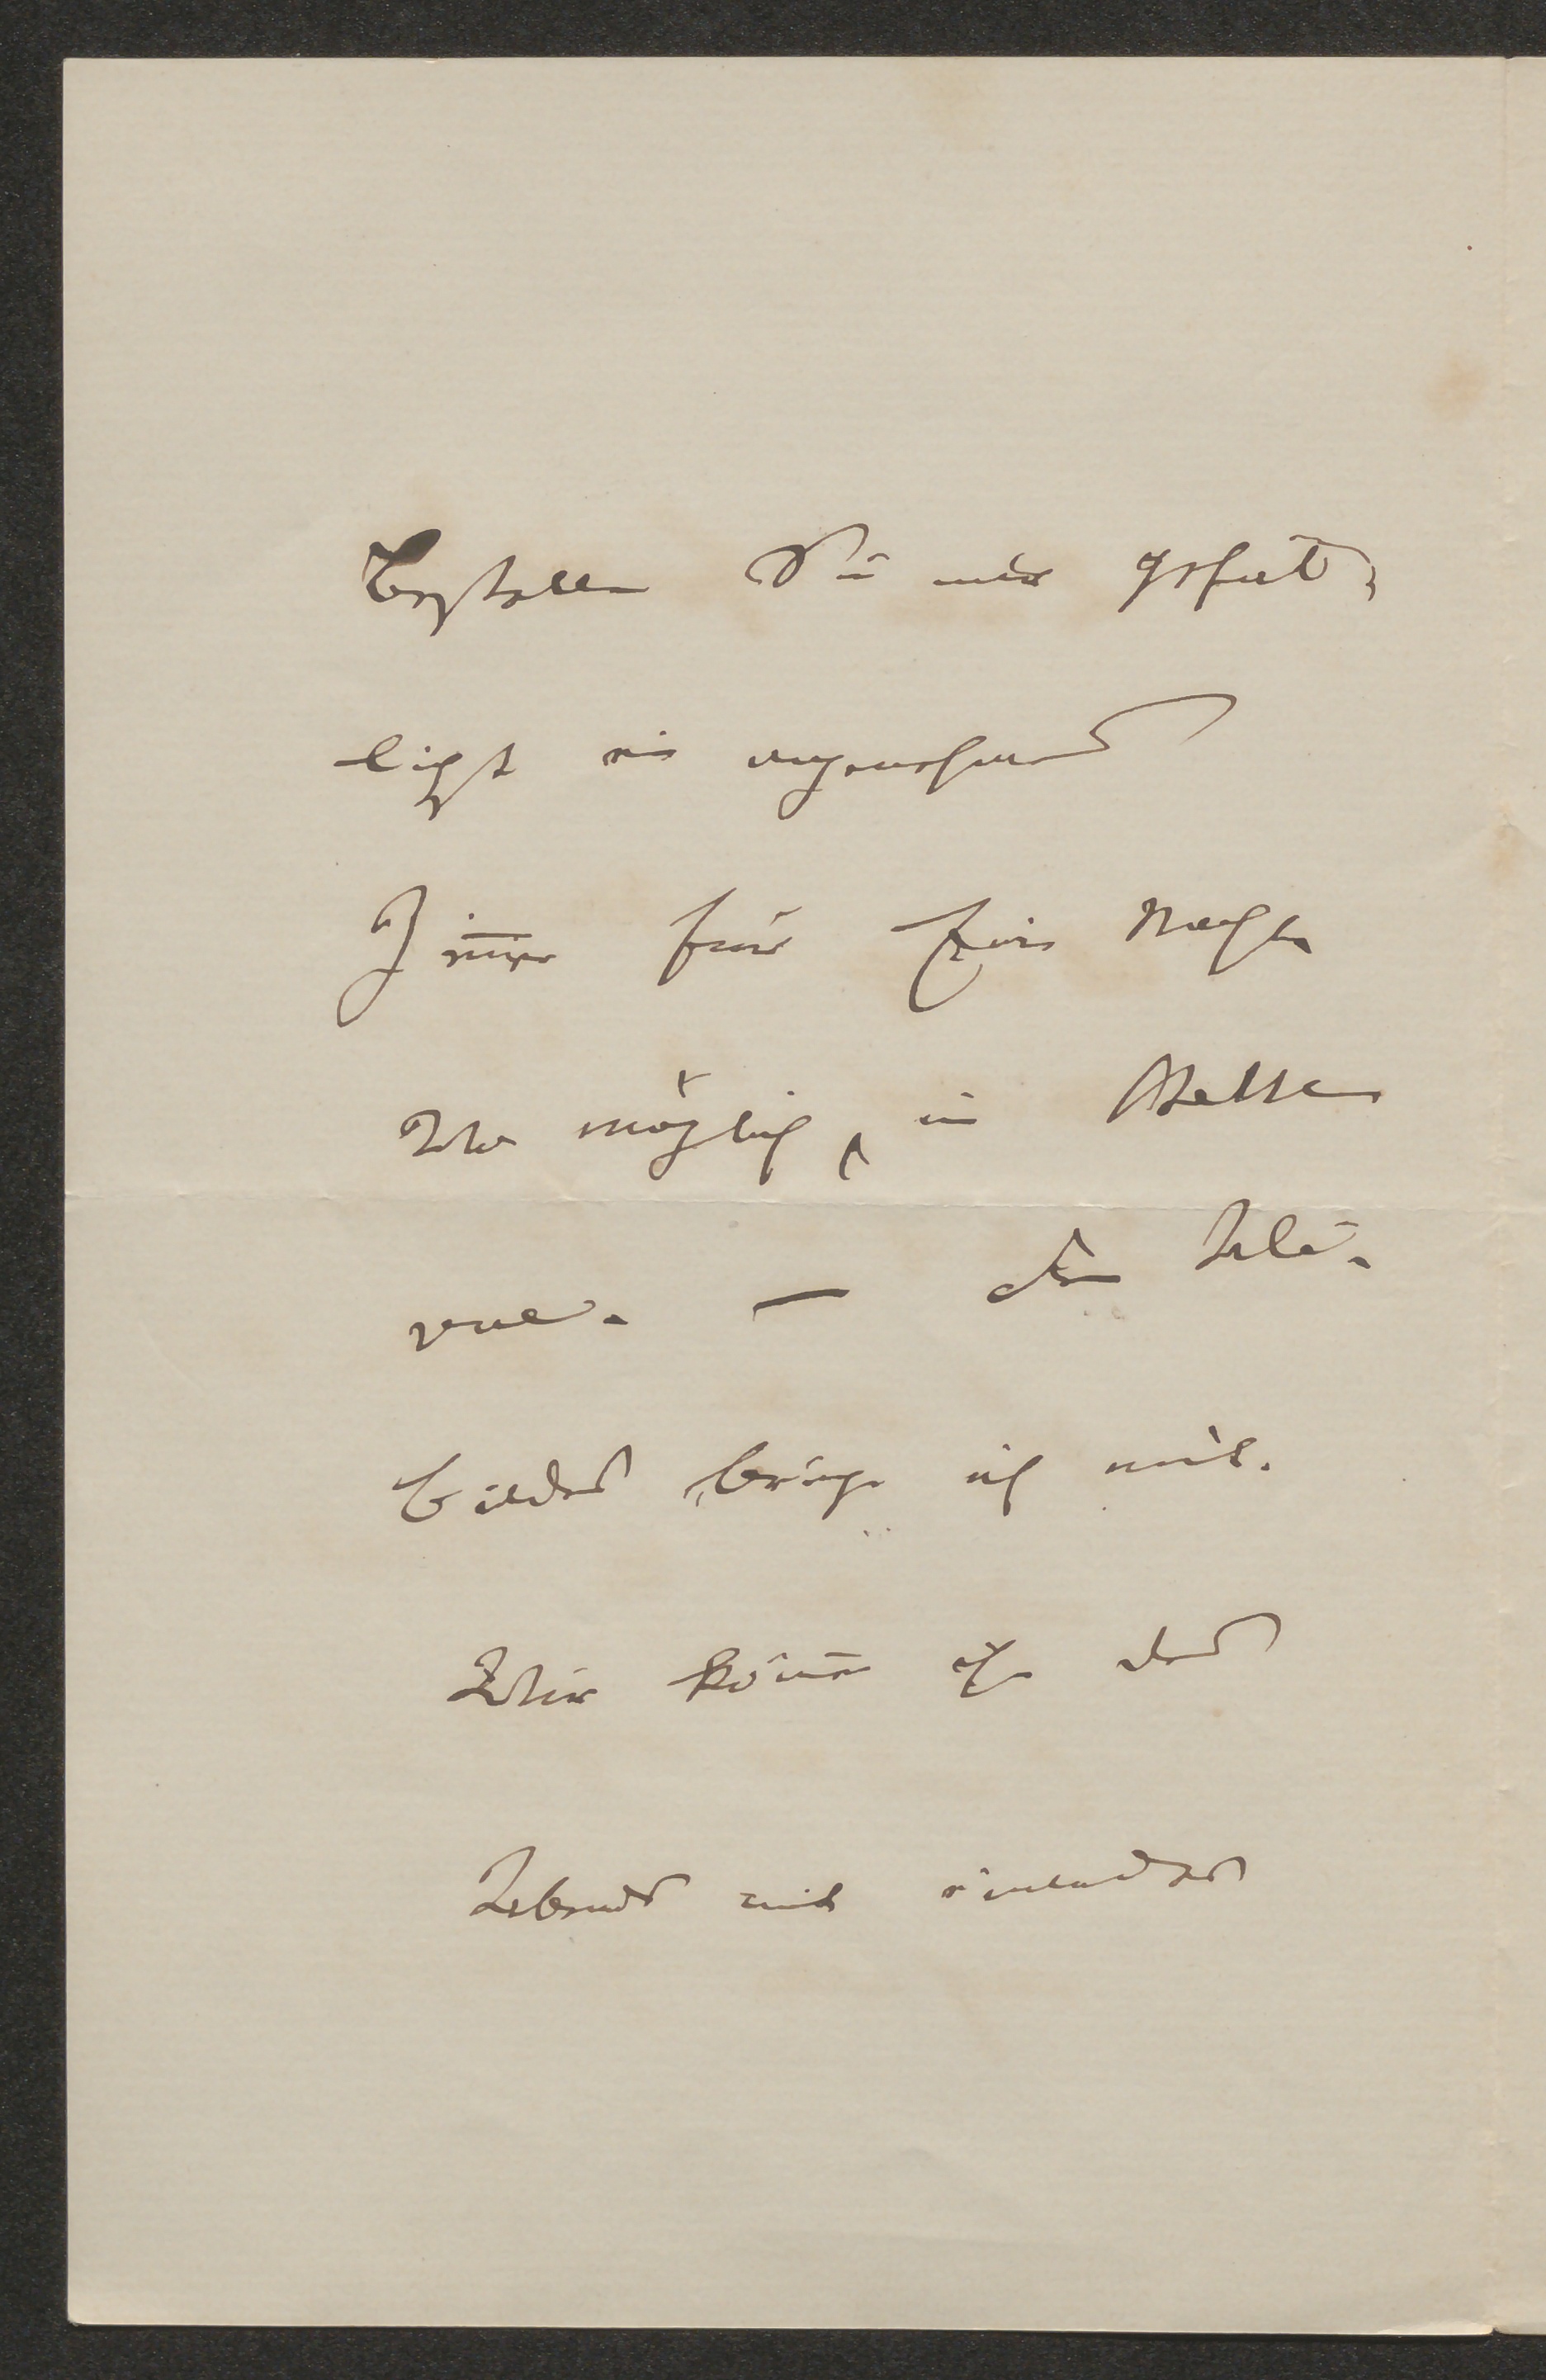 Bestellen Sie mir gefäl-
ligst ein angenehmes
Zimmer für Eine Nacht
wo möglich, in Belle
vue. —
bilder bringe ich mit.
Wir können ja des
Abends mit einander